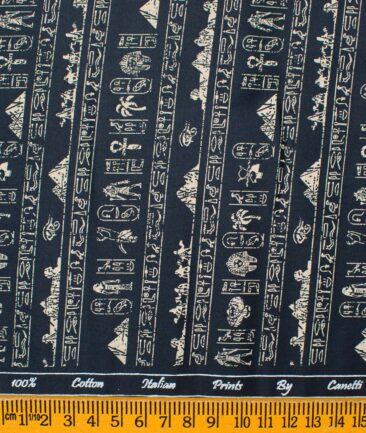 100% Cotton Italian Prints By Canetti
cm 1 1/10 2 3 4 5 6 7 8 9 10 11 12 13 14 15